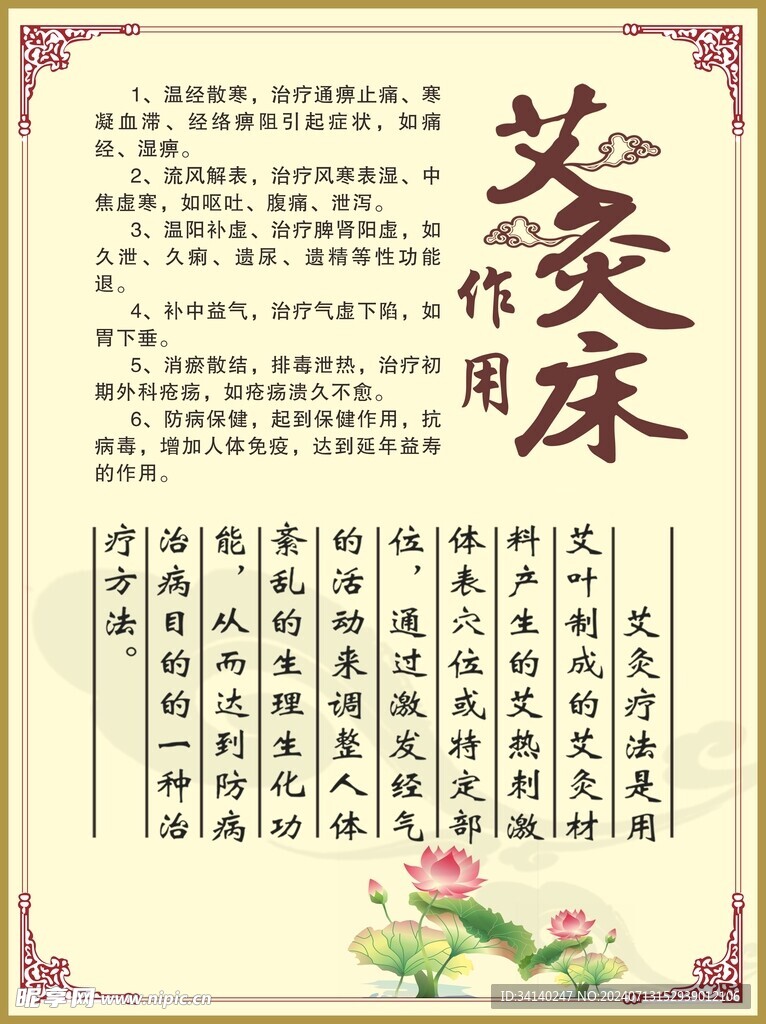 艾灸床
作用
1、温经散寒，治疗通痹止痛、寒
凝血滞、经络痹阻引起症状，如痛
经、湿痹。
2、流风解表，治疗风寒表湿、中
焦虚寒，如呕吐、腹痛、泄泻。
3、温阳补虚、治疗脾肾阳虚，如
久泄、久痢、遗尿、遗精等性功能
退。
4、补中益气，治疗气虚下陷，如
胃下垂。
5、消瘀散结，排毒泄热，治疗初
期外科疮疡，如疮疡溃久不愈。
6、防病保健，起到保健作用，抗
病毒，增加人体免疫，达到延年益寿
的作用。
艾灸疗法是用
艾叶制成的艾灸材
料产生的艾热刺激
体表穴位或特定部
位，通过激发经气
的活动来调整人体
紊乱的生理生化功
能，从而达到防病
治病目的的一种治
疗方法。
昵享网 www.nipic.cn
ID:34140247 NO:20240713152939012106